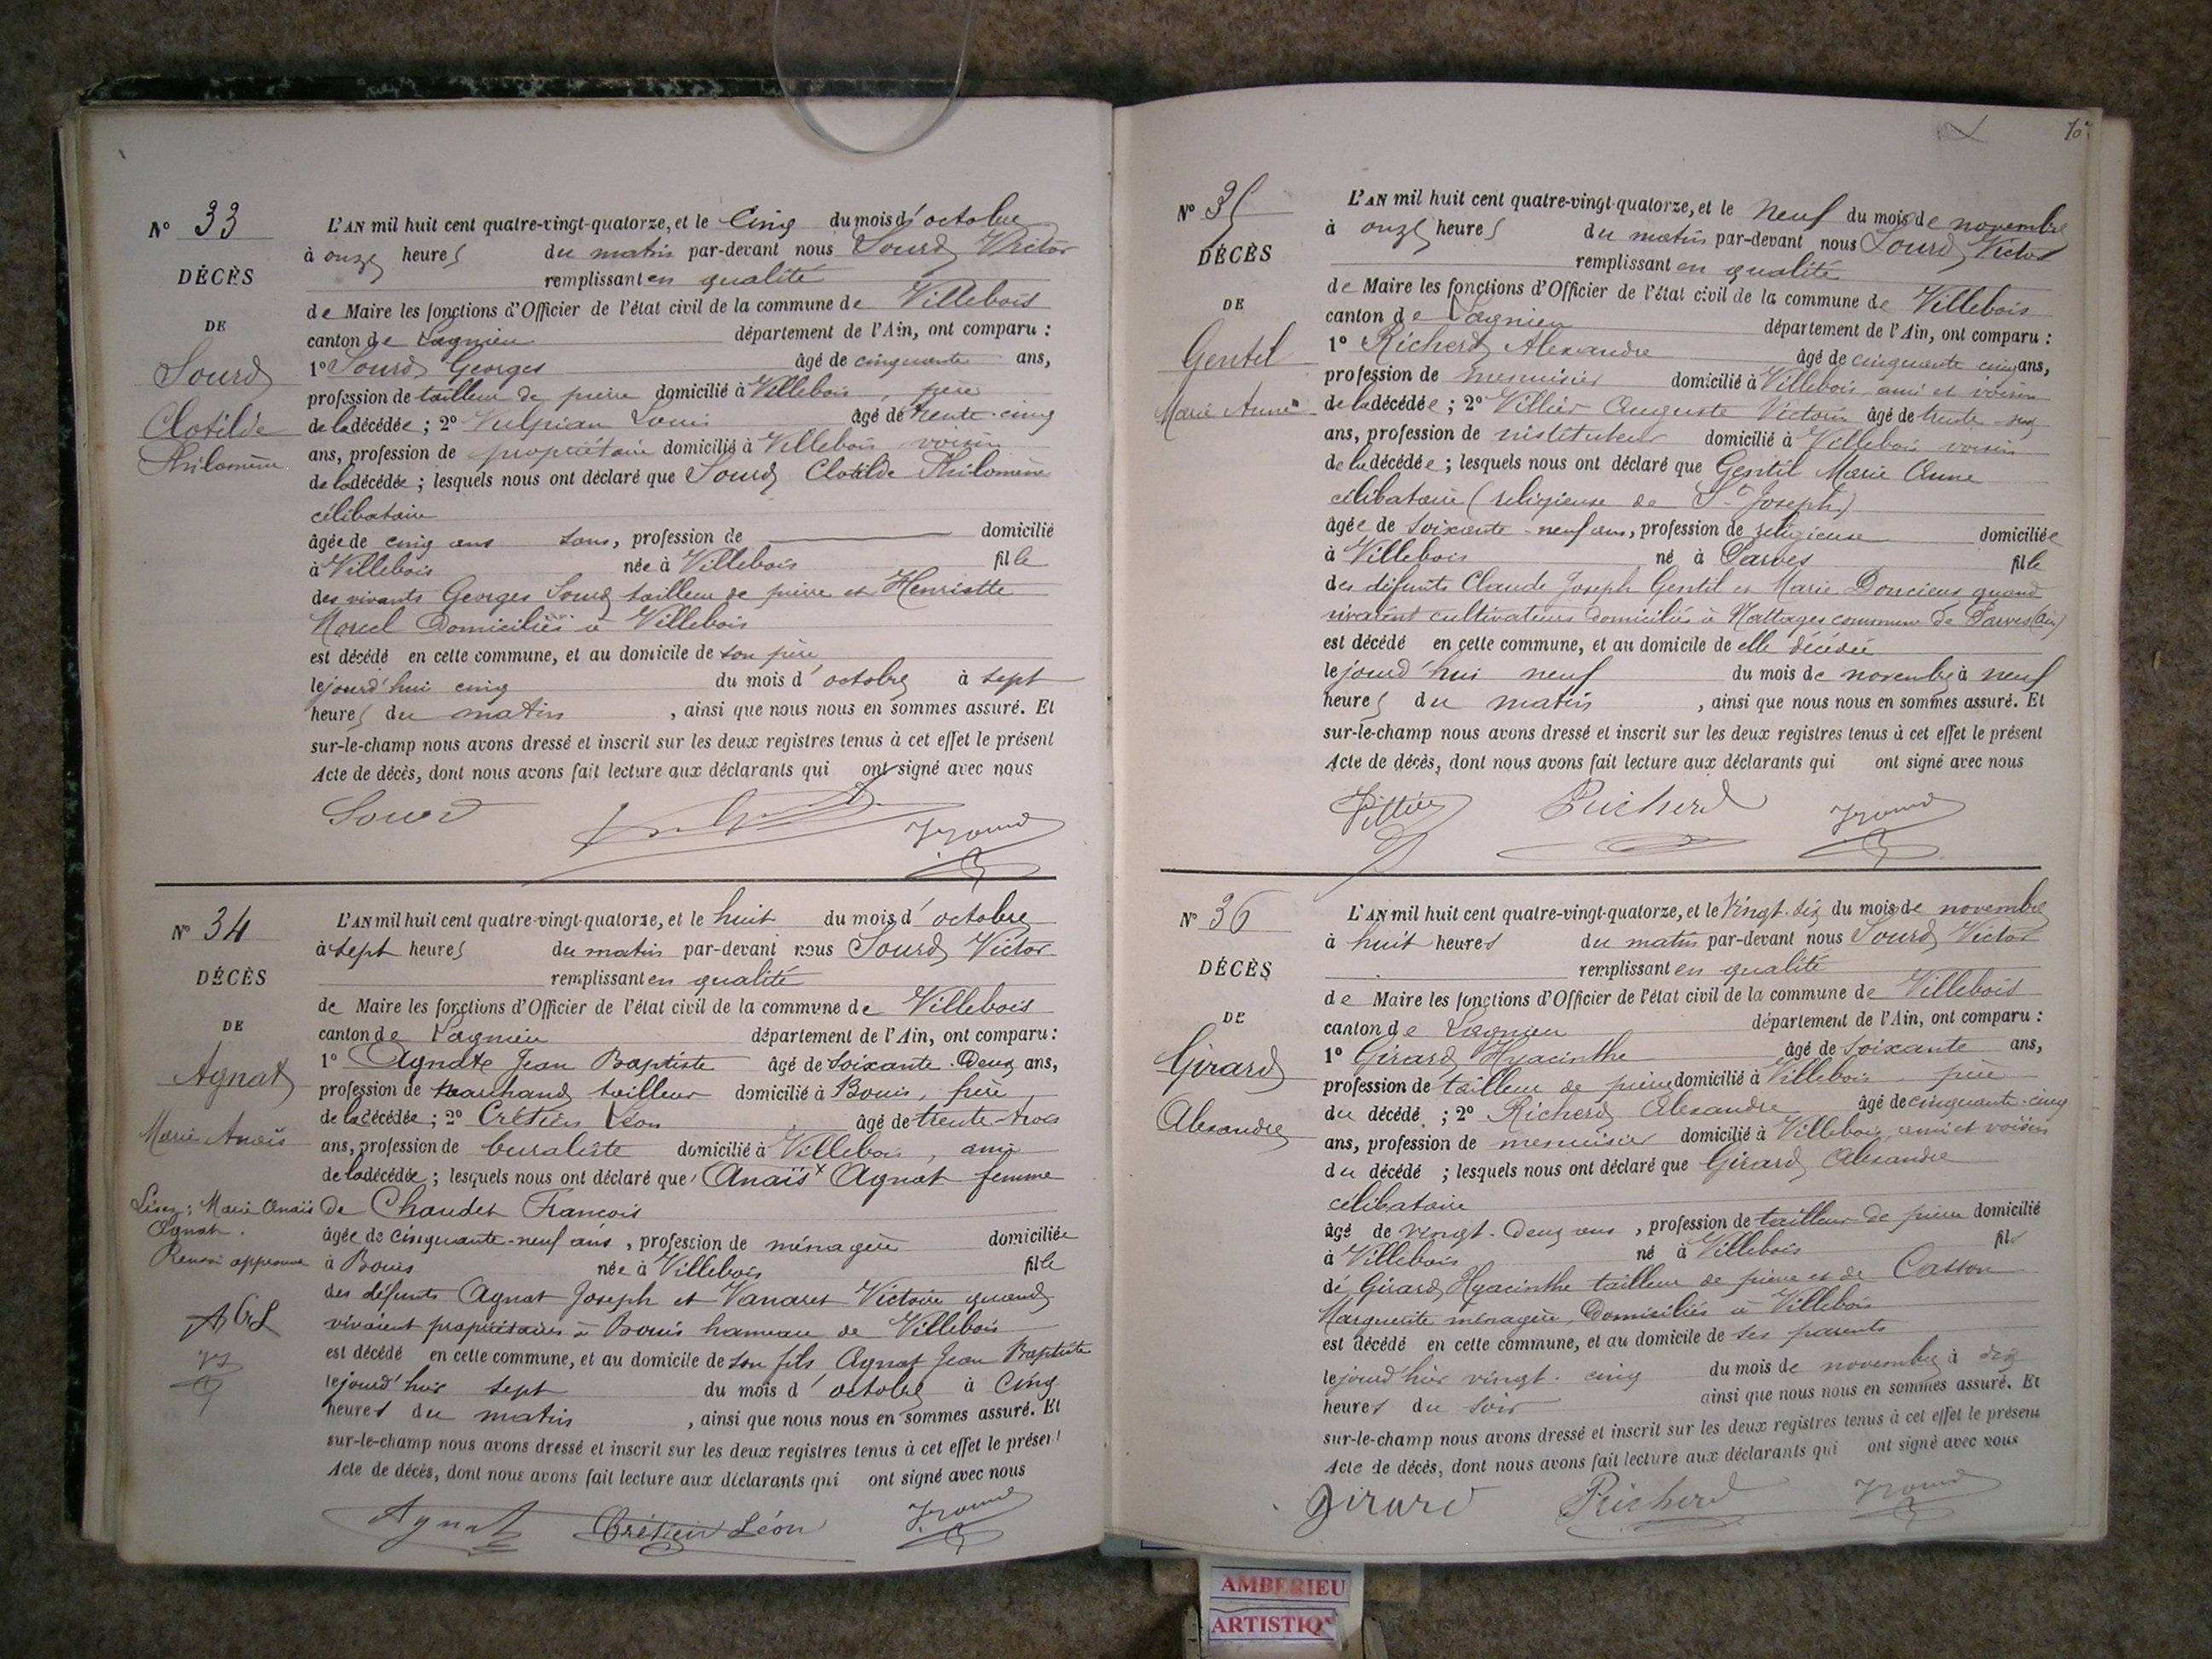 N° 33
DÉCÈS
DE
Sourd
Clotilde
Philomène
L'AN mil huit cent quatre-vingt-quatorze, et le Cinq du mois d'octobre
à onze heures du matin par-devant nous Sourd Victor
remplissant en qualité
de Maire les fonctions d'Officier de l'état civil de la commune de Villebois
canton de Lagnieu département de l'Ain, ont comparu :
1° Sourd Georges âgé de cinquante ans,
profession de tailleur de pierre domicilié à Villebois, père
de la décédée ; 2° Vulpian Louis âgé de trente-cinq
ans, profession de propriétaire domicilié à Villebois voisin
de la décédée ; lesquels nous ont déclaré que Sourd Clotilde Philomène
célibataire
âgée de cinq ans sans, profession de domicilié
à Villebois née à Villebois fille
des vivants Georges Sourd tailleur de pierre et Henriette
Morcel Domiciliés à Villebois
est décédé en cette commune, et au domicile de son père
le jourd'hui cinq du mois d'octobre à sept
heures du matin, ainsi que nous nous en sommes assuré. Et
sur-le-champ nous avons dressé et inscrit sur les deux registres tenus à cet effet le présent
Acte de décès, dont nous avons fait lecture aux déclarants qui ont signé avec nous
Sourd
N° 34
DÉCÈS
DE
Agnat
Marie Anaïs
Lisez : Marie Anaïs
Agnat.
Renvoi approuvé
L'AN mil huit cent quatre-vingt-quatorze, et le huit du mois d'octobre
à sept heures du matin par-devant nous Sourd Victor
remplissant en qualité
de Maire les fonctions d'Officier de l'état civil de la commune de Villebois
canton de Lagnieu département de l'Ain, ont comparu :
1° Agnate Jean Baptiste âgé de soixante-Deux ans,
profession de marchand tailleur domicilié à Bouis, frère
de la décédée ; 2° Crétien Léon âgé de trente-trois
ans, profession de buraliste domicilié à Villebois, ami
de la décédée ; lesquels nous ont déclaré que Anaïs x Agnat femme
De Chaudet François
âgée de cinquante-neuf ans, profession de ménagère domiciliée
à Bouis née à Villebois fille
des défunts Agnat Joseph et Vanaret Victoire quand
vivaient propriétaires à Bouis hameau de Villebois
est décédé en cette commune, et au domicile de son fils Agnat Jean Baptiste
le jourd'hier sept du mois d'octobre à Cinq
heures du matin, ainsi que nous nous en sommes assuré. Et
sur-le-champ nous avons dressé et inscrit sur les deux registres tenus à cet effet le présent
Acte de décès, dont nous avons fait lecture aux déclarants qui ont signé avec nous
Agnat Crétien Léon
N° 35
DÉCÈS
DE
Gentil
Marie Anne
L'AN mil huit cent quatre-vingt-quatorze, et le neuf du mois de novembre
à onze heures du matin par-devant nous Sourd Victor
remplissant en qualité
de Maire les fonctions d'Officier de l'état civil de la commune de Villebois
canton de Lagnieu département de l'Ain, ont comparu :
1° Richerd Alexandre âgé de cinquante cinq ans,
profession de menuisier domicilié à Villebois ami et voisin
de la décédée ; 2° Villier Auguste Victorin âgé de trente
ans, profession de instituteur domicilié à Villebois voisin
de la décédée ; lesquels nous ont déclaré que Gentil Marie Anne
célibataire (religieuse de St Joseph)
âgée de soixante-neuf ans, profession de religieuse domiciliée
à Villebois né à Parves fille
des défunts Claude Joseph Gentil et Marie Doncieux quand
vivaient cultivateurs domiciliés à Nattages commune de Parves (Ain)
est décédé en cette commune, et au domicile de elle décédée
le jourd'hui neuf du mois de novembre à neuf
heures du matin, ainsi que nous nous en sommes assuré. Et
sur-le-champ nous avons dressé et inscrit sur les deux registres tenus à cet effet le présent
Acte de décès, dont nous avons fait lecture aux déclarants qui ont signé avec nous
Villier Richerd
N° 36
DÉCÈS
DE
Girard
Alexandre
L'AN mil huit cent quatre-vingt-quatorze, et le vingt-six du mois de novembre
à huit heures du matin par-devant nous Sourd Victor
remplissant en qualité
de Maire les fonctions d'Officier de l'état civil de la commune de Villebois
canton de Lagnieu département de l'Ain, ont comparu :
1° Girard Hyacinthe âgé de soixante ans,
profession de tailleur de pierre domicilié à Villebois père
du décédé ; 2° Richerd Alexandre âgé de cinquante-cinq
ans, profession de menuisier domicilié à Villebois, ami et voisin
du décédé ; lesquels nous ont déclaré que Girard Alexandre
célibataire
âgé de vingt-Deux ans, profession de tailleur de pierre domicilié
à Villebois né à Villebois fils
de Girard Hyacinthe tailleur de pierre et de Casson
Marguerite ménagère, Domiciliés à Villebois
est décédé en cette commune, et au domicile de ses parents
le jourd'hier vingt-cinq du mois de novembre à dix
heures du soir ainsi que nous nous en sommes assuré. Et
sur-le-champ nous avons dressé et inscrit sur les deux registres tenus à cet effet le présent
Acte de décès, dont nous avons fait lecture aux déclarants qui ont signé avec nous
Girard Richerd
AMBERIEU
ARTISTIQ